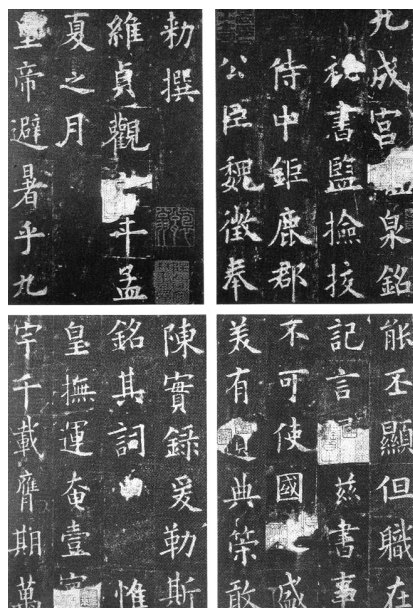 九成宮泉銘
秘書監撿挍
侍中鉅鹿郡
公臣魏徵奉
勑撰
維貞觀年孟
夏之月
皇帝避暑乎九
能丕顯但職在
記言茲書事
不可使國盛
美有典策敢
陳實録爰勒斯
銘其詞惟
皇撫運奄壹
宇千載膺期萬